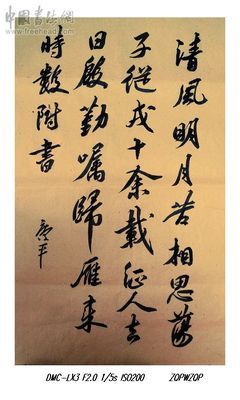 www.freehead.com
清風明月苦相思蕩
子從戎十余載征人去
日殷勤囑歸雁来
時數附書
DMC-LX3 F2.0 1/5s ISO200 ZOPWZOP